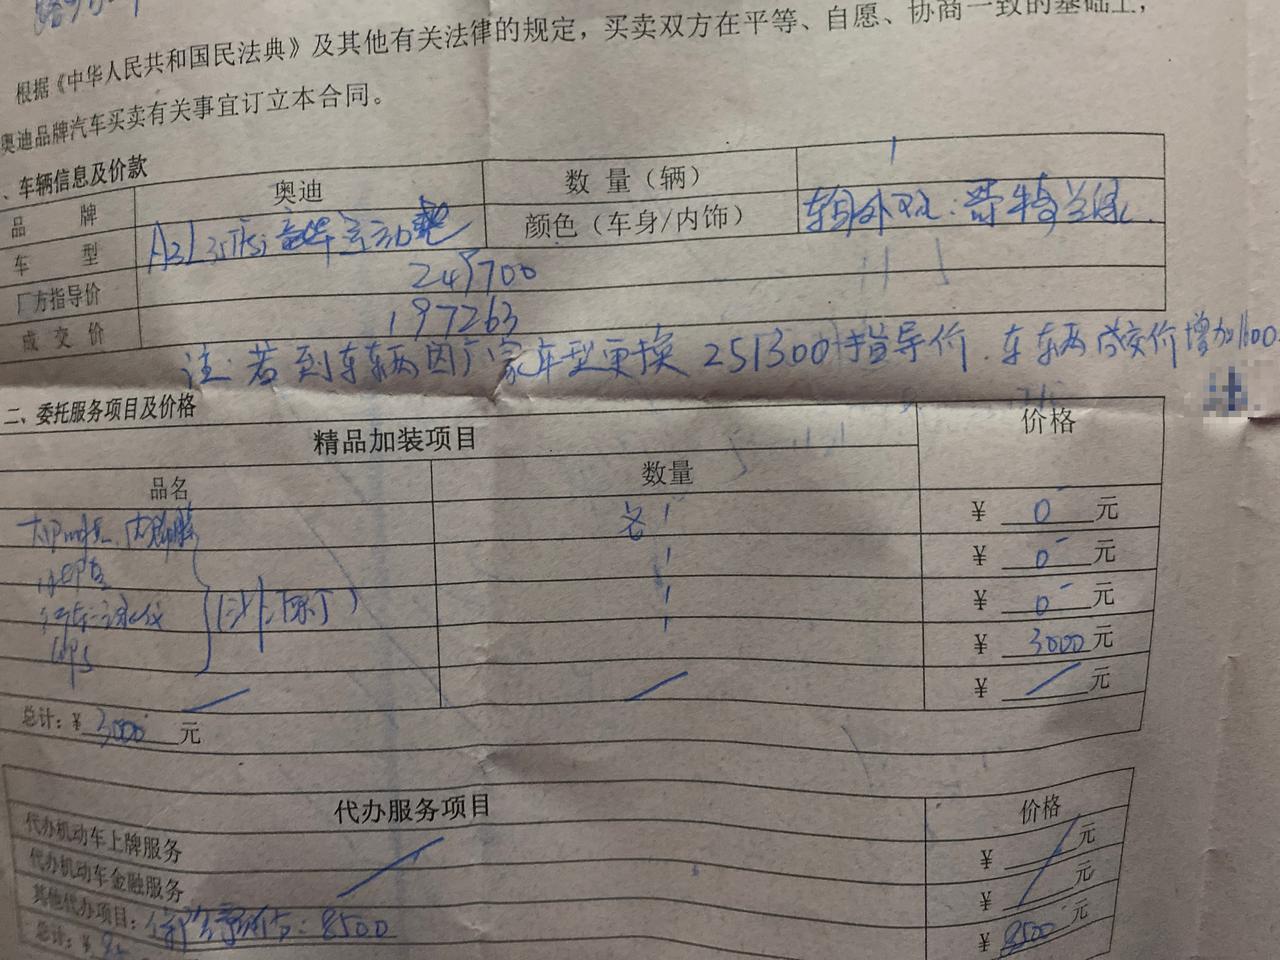 根据《中华人民共和国民法典》及其他有关法律的规定，买卖双方在平等、自愿、协商一致的基础上，
奥迪品牌汽车买卖有关事宜订立本合同。
、车辆信息及价款
品 牌 奥迪 数 量（辆） 1
车 型 A3L 运动 颜色（车身/内饰）
厂方指导价 249700
成 交 价 197263
注：若到车车辆因厂家车型更换 251300指导价，车车辆成交价增加1600
二、委托服务项目及价格
精品加装项目 价格
品名 数量
内 各1 ¥ 0 元
1 ¥ 0 元
行车记录仪 1 ¥ 0 元
1 ¥ 3000 元
¥ 元
总计：¥ 3000 元
代办服务项目 价格
代办机动车上牌服务 ¥ 元
代办机动车金融服务 ¥ 元
其他代办项目：保险预估：8500 ¥ 8500 元
总计：¥